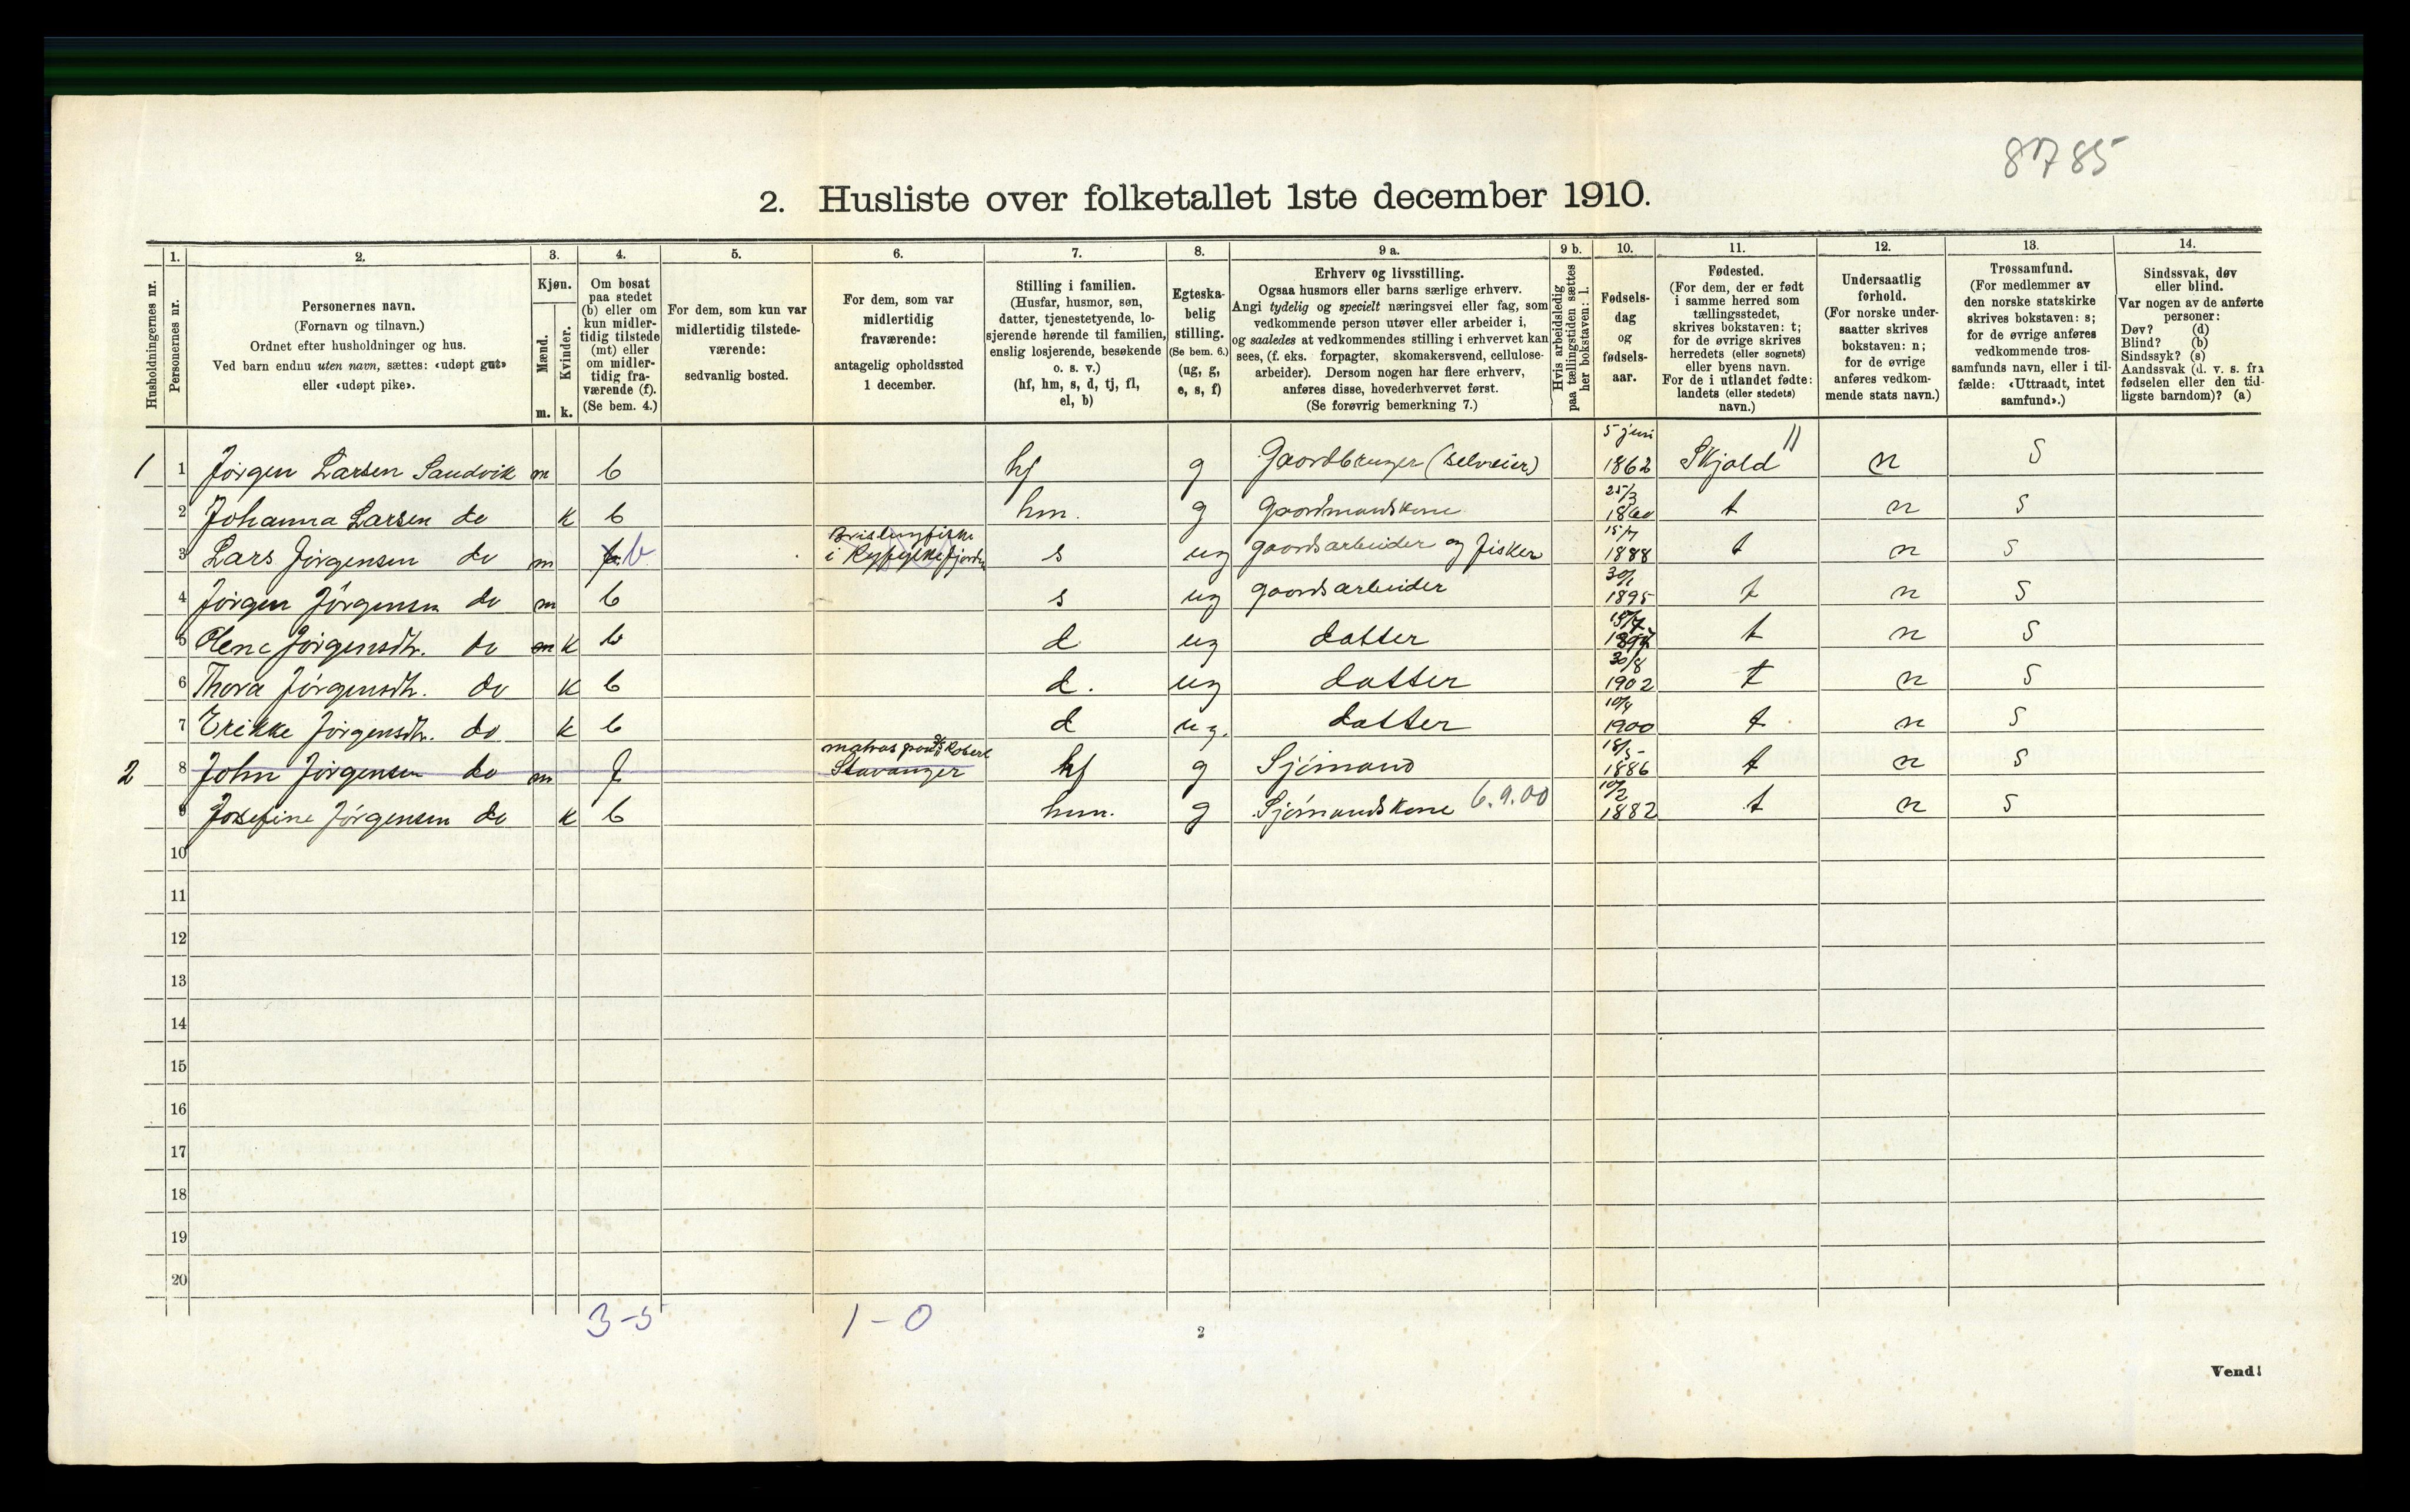 8785
2. Husliste over folketallet 1ste december 1910.
Husholdningernes nr.
1.
Personernes nr.
2.
Personernes navn.
(Fornavn og tilnavn.)
Ordnet efter husholdninger og hus.
Ved barn endnu uten navn, sættes: «udøpt gut»
eller «udøpt pike».
3.
Kjøn.
Mænd.
Kvinder.
m. k.
4.
Om bosat
paa stedet
(b) eller om
kun midler-
tidig tilstede
(mt) eller
om midler-
tidig fra-
værende (f).
(Se bem. 4.)
5.
For dem, som kun var
midlertidig tilstede-
værende:
sedvanlig bosted.
6.
For dem, som var
midlertidig
fraværende:
antagelig opholdssted
1 december.
7.
Stilling i familien.
(Husfar, husmor, søn,
datter, tjenestetyende, lo-
sjerende hørende til familien,
enslig losjerende, besøkende
o. s. v.)
(hf, hm, s, d, tj, fl,
el, b)
8.
Egteska-
belig
stilling.
(Se bem. 6.)
(ug, g,
e, s, f)
9 a.
Erhverv og livsstilling.
Ogsaa husmors eller barns særlige erhverv.
Angi tydelig og specielt næringsvei eller fag, som
vedkommende person utøver eller arbeider i,
og saaledes at vedkommendes stilling i erhvervet kan
sees, (f. eks. forpagter, skomakersvend, cellulose-
arbeider). Dersom nogen har flere erhverv,
anføres disse, hovederhvervet først.
(Se forøvrig bemerkning 7.)
9 b.
Hvis arbeidsledig
paa tællingstiden sættes
her bokstaven: l.
10.
Fødsels-
dag
og
fødsels-
aar.
11.
Fødested.
(For dem, der er født
i samme herred som
tællingsstedet,
skrives bokstaven: t;
for de øvrige skrives
herredets (eller sognets)
eller byens navn.
For de i utlandet fødte:
landets (eller stedets)
navn.)
12.
Undersaatlig
forhold.
(For norske under-
saatter skrives
bokstaven: n;
for de øvrige
anføres vedkom-
mende stats navn.)
13.
Trossamfund.
(For medlemmer av
den norske statskirke
skrives bokstaven: s;
for de øvrige anføres
vedkommende tros-
samfunds navn, eller i til-
fælde: «Uttraadt, intet
samfund».)
14.
Sindssvak, døv
eller blind.
Var nogen av de anførte
personer:
Døv? (d)
Blind? (b)
Sindssyk? (s)
Aandssvak (d. v. s. fra
fødselen eller den tid-
ligste barndom)? (a)
1 1 Jørgen Larsen Sandvik m b hf g Gaardbruger (selveier) 5 juni 1862 Skjold 11 n S
2 Johanna Larsen do k b hm. g gaardmandskone 25/3 1860 t n S
3 Lars Jørgensen do m f b Brislingfiske i Ryfylkefjorden s ug gaardsarbeider og fisker 15/7 1888 t n S
4 Jørgen Jørgensen do m b s ug gaardsarbeider 30/1 1895 t n S
5 Olene Jørgensdtr. do m k b d ug datter t n S
6 Thora Jørgensdtr. do k b d. ug datter 30/8 1902 t n S
7 Erikke Jørgensdtr. do k b d ug. datter 10/4 1900 t n S
2 8 John Jørgensen do m f matros Robert Stavanger hf g Sjømand 18/5 1886 t n S
9 Josefine Jørgensen do k b hm. g Sjømandskone 6.9.00 10/2 1882 t n S
10
11
12
13
14
15
16
17
18
19
20
3-5 1-0
2
Vend!